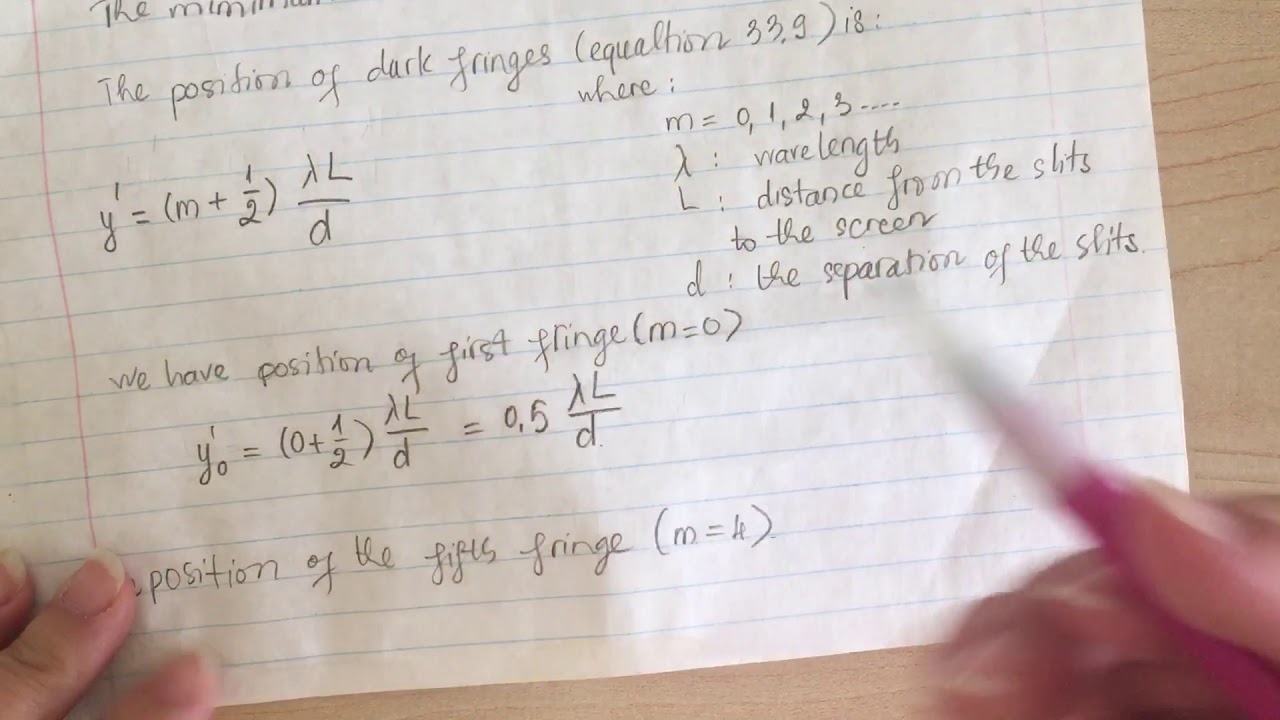 The
The position of dark fringes (equaltion 33.9) is:
where:
m = 0, 1, 2, 3 ....
λ : wavelength
L : distance from the slits
to the screen
d : the separation of the slits.
y' = (m + 1/2) λL/d
We have position of first fringe (m=0)
y'₀ = (0+1/2) λL/d = 0,5 λL/d.
position of the fifts fringe (m=4).